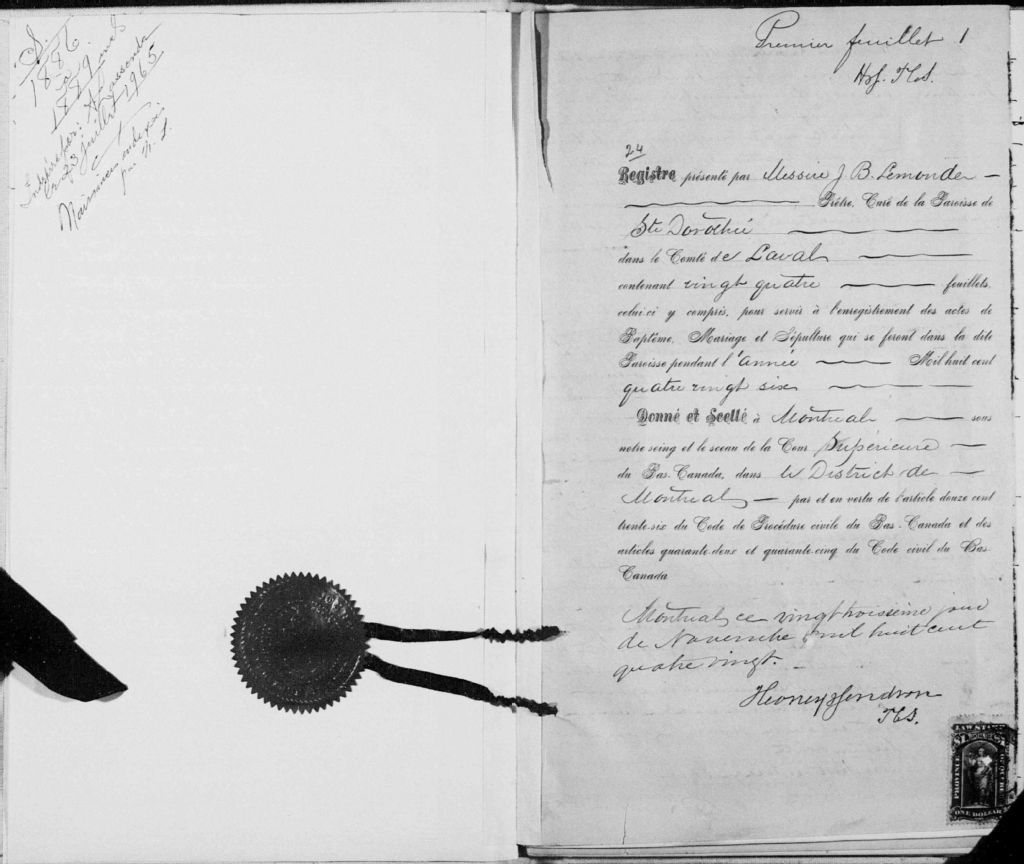 S.
1886
à
1889.
Indexé par: A.
ce 23 juillet 1965
Naissances indexées
par
Premier feuillet 1
24
Registre présenté par Messire J. B. Lemonde
Prêtre, Curé de la Paroisse de
Ste Dorothée
dans le Comté de Laval
contenant vingt quatre feuillets,
celui-ci y compris, pour servir à l'enregistrement des actes de
Baptême, Mariage et Sépulture qui se feront dans la dite
Paroisse pendant l'année Mil huit cent
quatre vingt six
Donné et Scellé à Montreal sous
notre seing et le sceau de la Cour Supérieure
du Bas-Canada, dans le District de
Montreal par et en vertu de l'article douze cent
trente-six du Code de Procédure civile du Bas-Canada et des
articles quarante-deux et quarante-cinq du Code civil du Bas-
Canada
Montreal, ce vingt troisième jour
de Novembre mil huit cent
quatre vingt.
LAW STAMP
PROVINCE OF QUEBEC
ONE DOLLAR